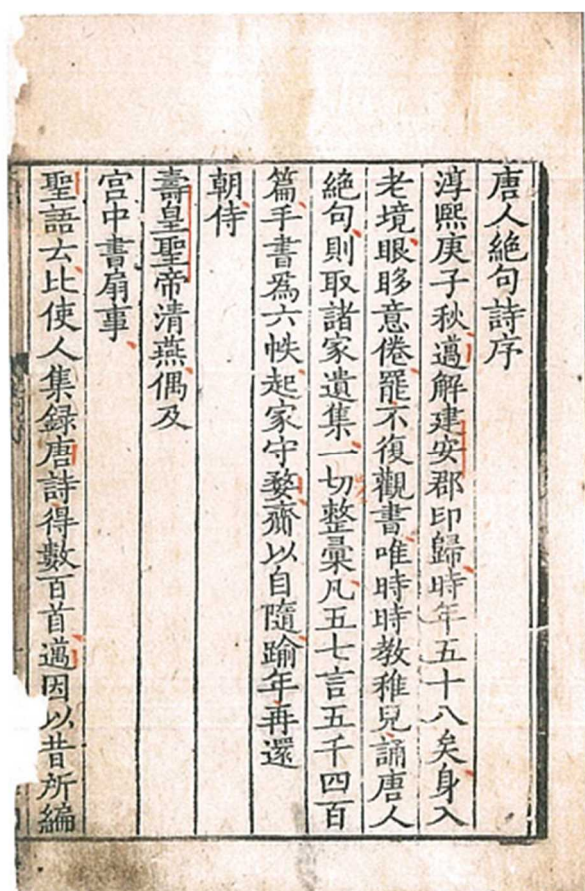 唐人絕句詩序
淳熙庚子秋邁解建安郡印歸時年五十八矣身入
老境眼眵意倦罷不復觀書唯時時教稚兒誦唐人
絕句則取諸家遺集一切整彙凡五七言五千四百
篇手書爲六帙起家守婺齎以自隨踰年再還
朝侍
壽皇聖帝清燕偶及
宮中書扇事
聖語云比使人集録唐詩得數百首邁因以昔所編